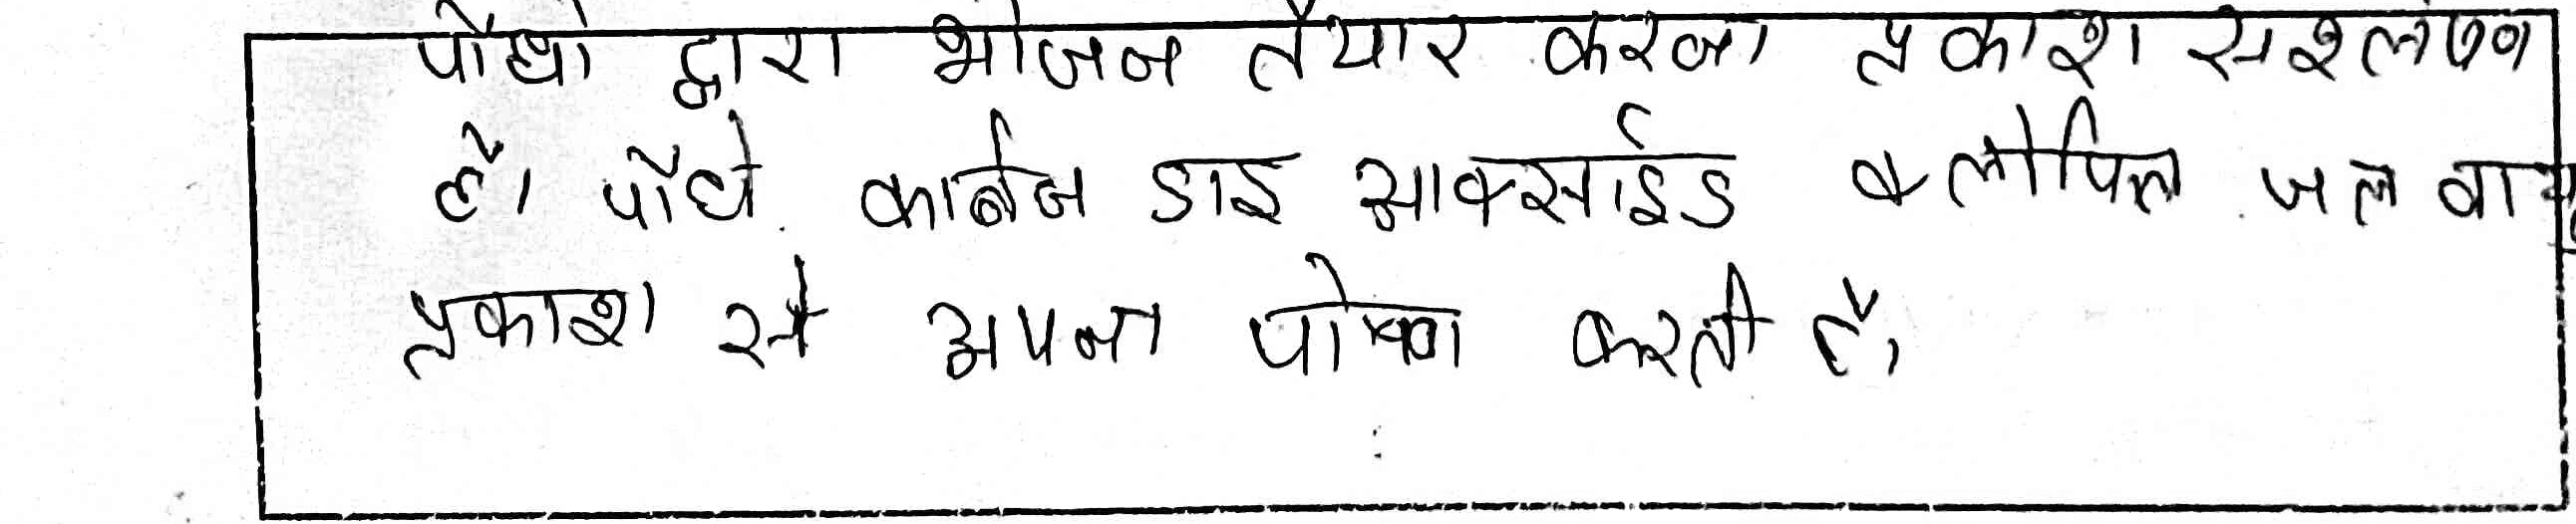 पौधो द्वारा भोजन तैयार करना प्रकाश सश्लेषण
है। पौधे कार्बन डाइ आक्साईड क्लोपिल जल वायु
प्रकाश से अपना पोषण करती है।